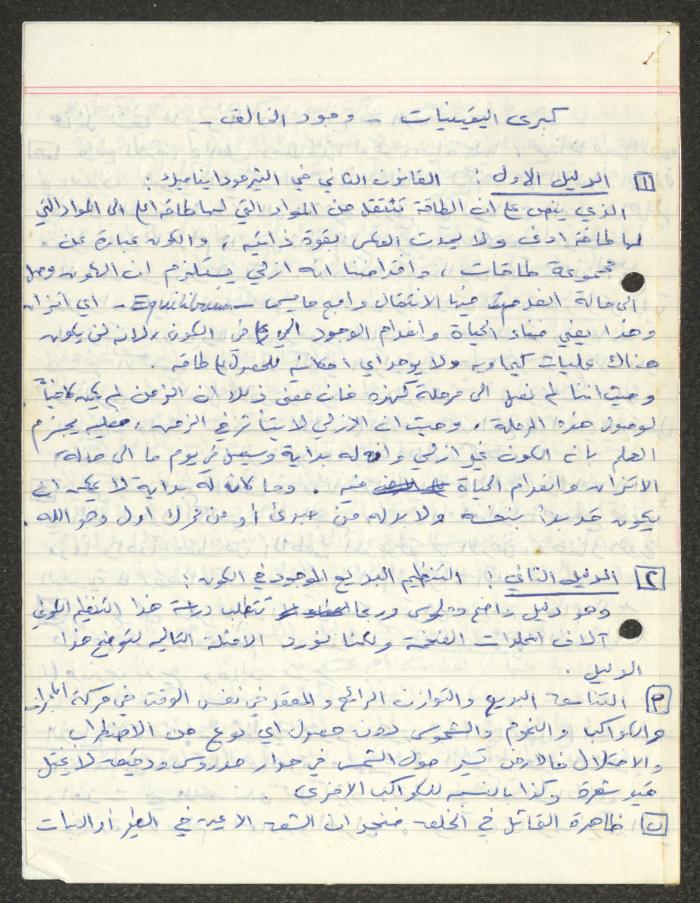 كبرى اليقينيات - وجود الخالق -
١ الدليل الاول : القانون الثاني في الثيرمودايناميك :
الذي ينص على ان الطاقة تنتقل من المواد التي لها طاقة اعلى الى المواد التي
لها طاقة ادنى ولا يحدث العكس بقوة ذاتية ، والكون عبارة عن
مجموعة طاقات ، وافتراضنا انه ازلي يستلزم ان الكون وصل
الى حالة انعدم فيها الانتقال واصبح ما يسمى - Equilibrium - اي اتزان
وهذا يعني فناء الحياة وانعدام الوجود الحي في الكون ، لانه لن يكون
هناك عمليات كيماوية ولا يوجد اي امكانية للحصول على طاقة .
وحيث اننا لم نصل الى مرحلة كهذه فان معنى ذلك ان الزمن لم يكن كافياً
لوصول هذه المرحلة ، وحيث ان الازلي لا يتأثر بالزمن ، فعليه يجزم
العلم بانه الكون غير ازلي ، وله بداية وسيصل في يوم ما الى حالة
الاتزان وانعدام الحياة فيه . وما كان له بداية لا يمكن ان
يكون قد بدأ بنفسه ولا بد له من مبدئ أو من محرك اول وهو الله .
٢ الدليل الثاني : التنظيم البديع الموجود في الكون :
وهو دليل واضح وملموس وربما تتطلب دراسة هذا التنظيم الكوني
آلاف المجلدات الضخمة ولكننا نورد الامثلة التالية لتوضيح هذا
الدليل .
م التناسق البديع والتوازن الرائع والمعقد في نفس الوقت في حركة المجرات
والكواكب والنجوم والشموس دون حصول اي نوع من الاضطراب
والاختلال فالارض تسير حول الشمس في مدار مدروس ودقيق لا يختل
قيد شعرة وكذا بالنسبة للكواكب الاخرى
ب ظاهرة التماثل في الخلقة فنجد ان الشق الايمن في الطير او النبات